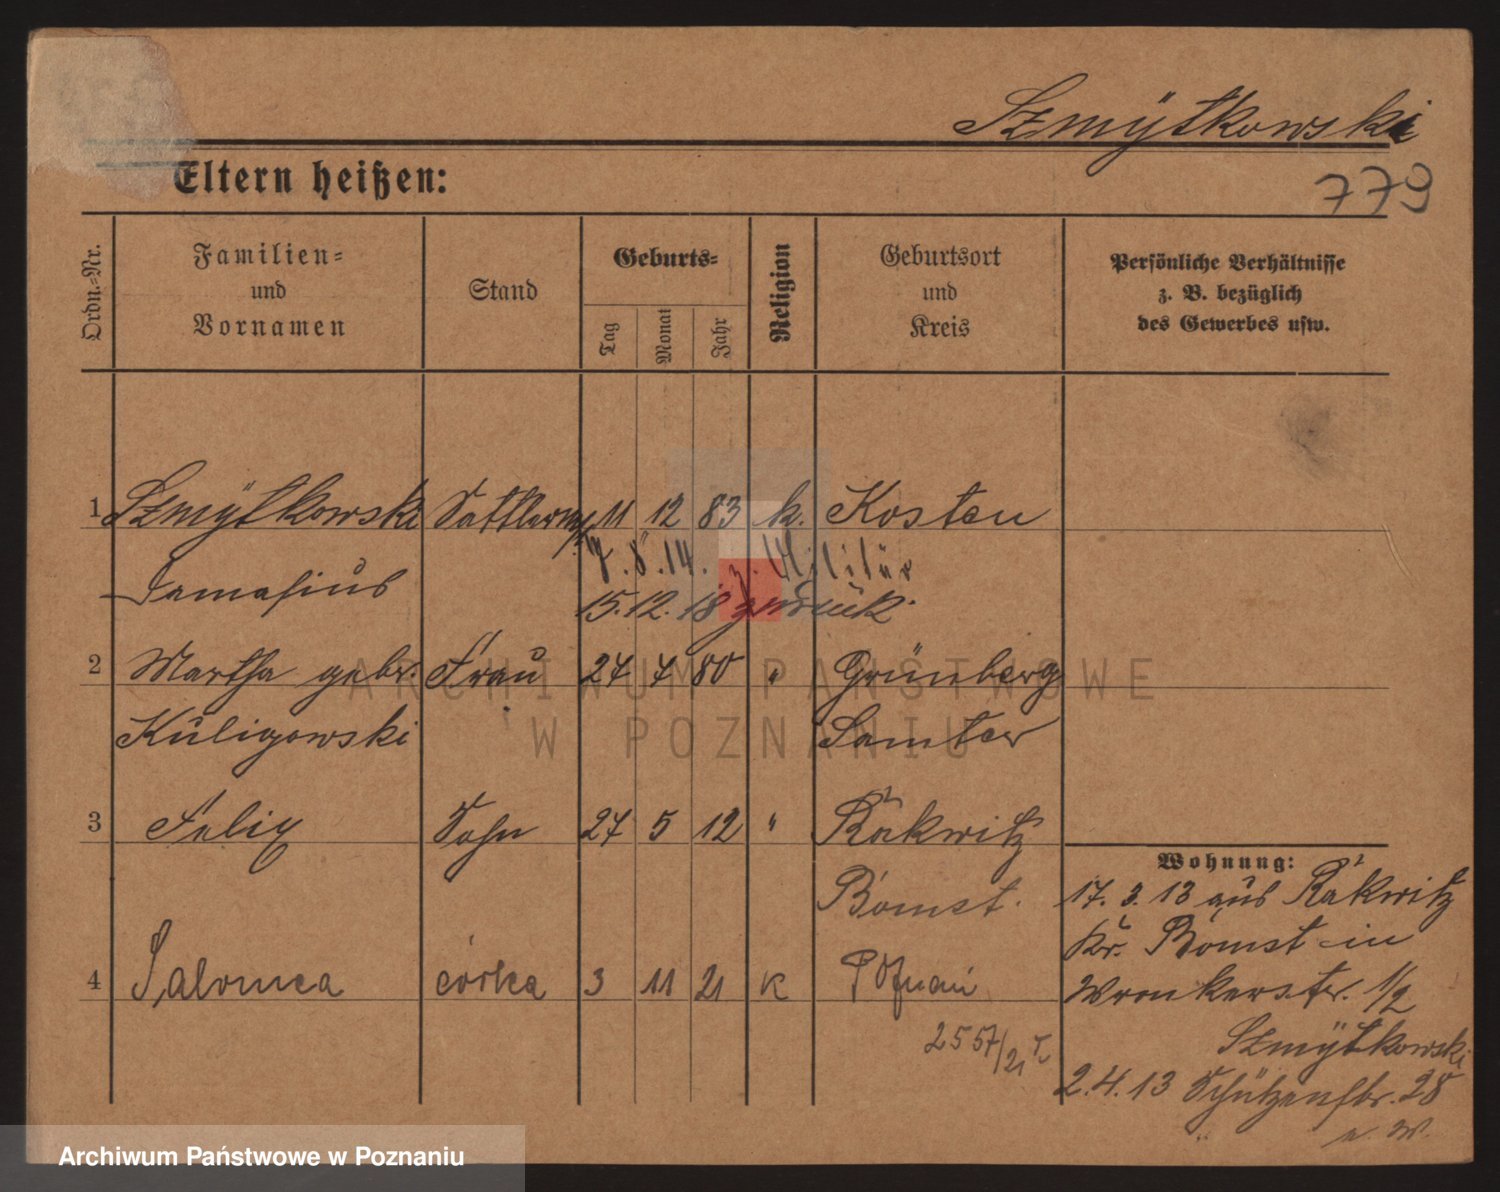 Szmÿtkowski
779
Eltern heißen:
Ordn.-Nr.
Familien-
und
Vornamen
Stand
Geburts-
Tag
Monat
Jahr
Religion
Geburtsort
und
Kreis
Persönliche Verhältnisse
z. B. bezüglich
des Gewerbes usw.
1 Szmÿtkowski Sattlerm 11 12 83 k. Kosten
7.8.14. z. Militär
Damasius 15.12.18 zurück.
2 Martha gebr. Frau 27 7 80 " Grünberg
Kuligowski Samter
3 Felix Sohn 27 5 12 " Rakwitz
Bomst.
Wohnung:
17. 3. 13 aus Rakwitz
Kr. Bomst in
4 Salomea córka 3 11 21 K Poznań
Wronkerstr. 1/2
2557/21
Szmÿtkowski
2.4.13 Schützenstr. 28
ARCHIWUM PAŃSTWOWE
W POZNANIU
Archiwum Państwowe w Poznaniu